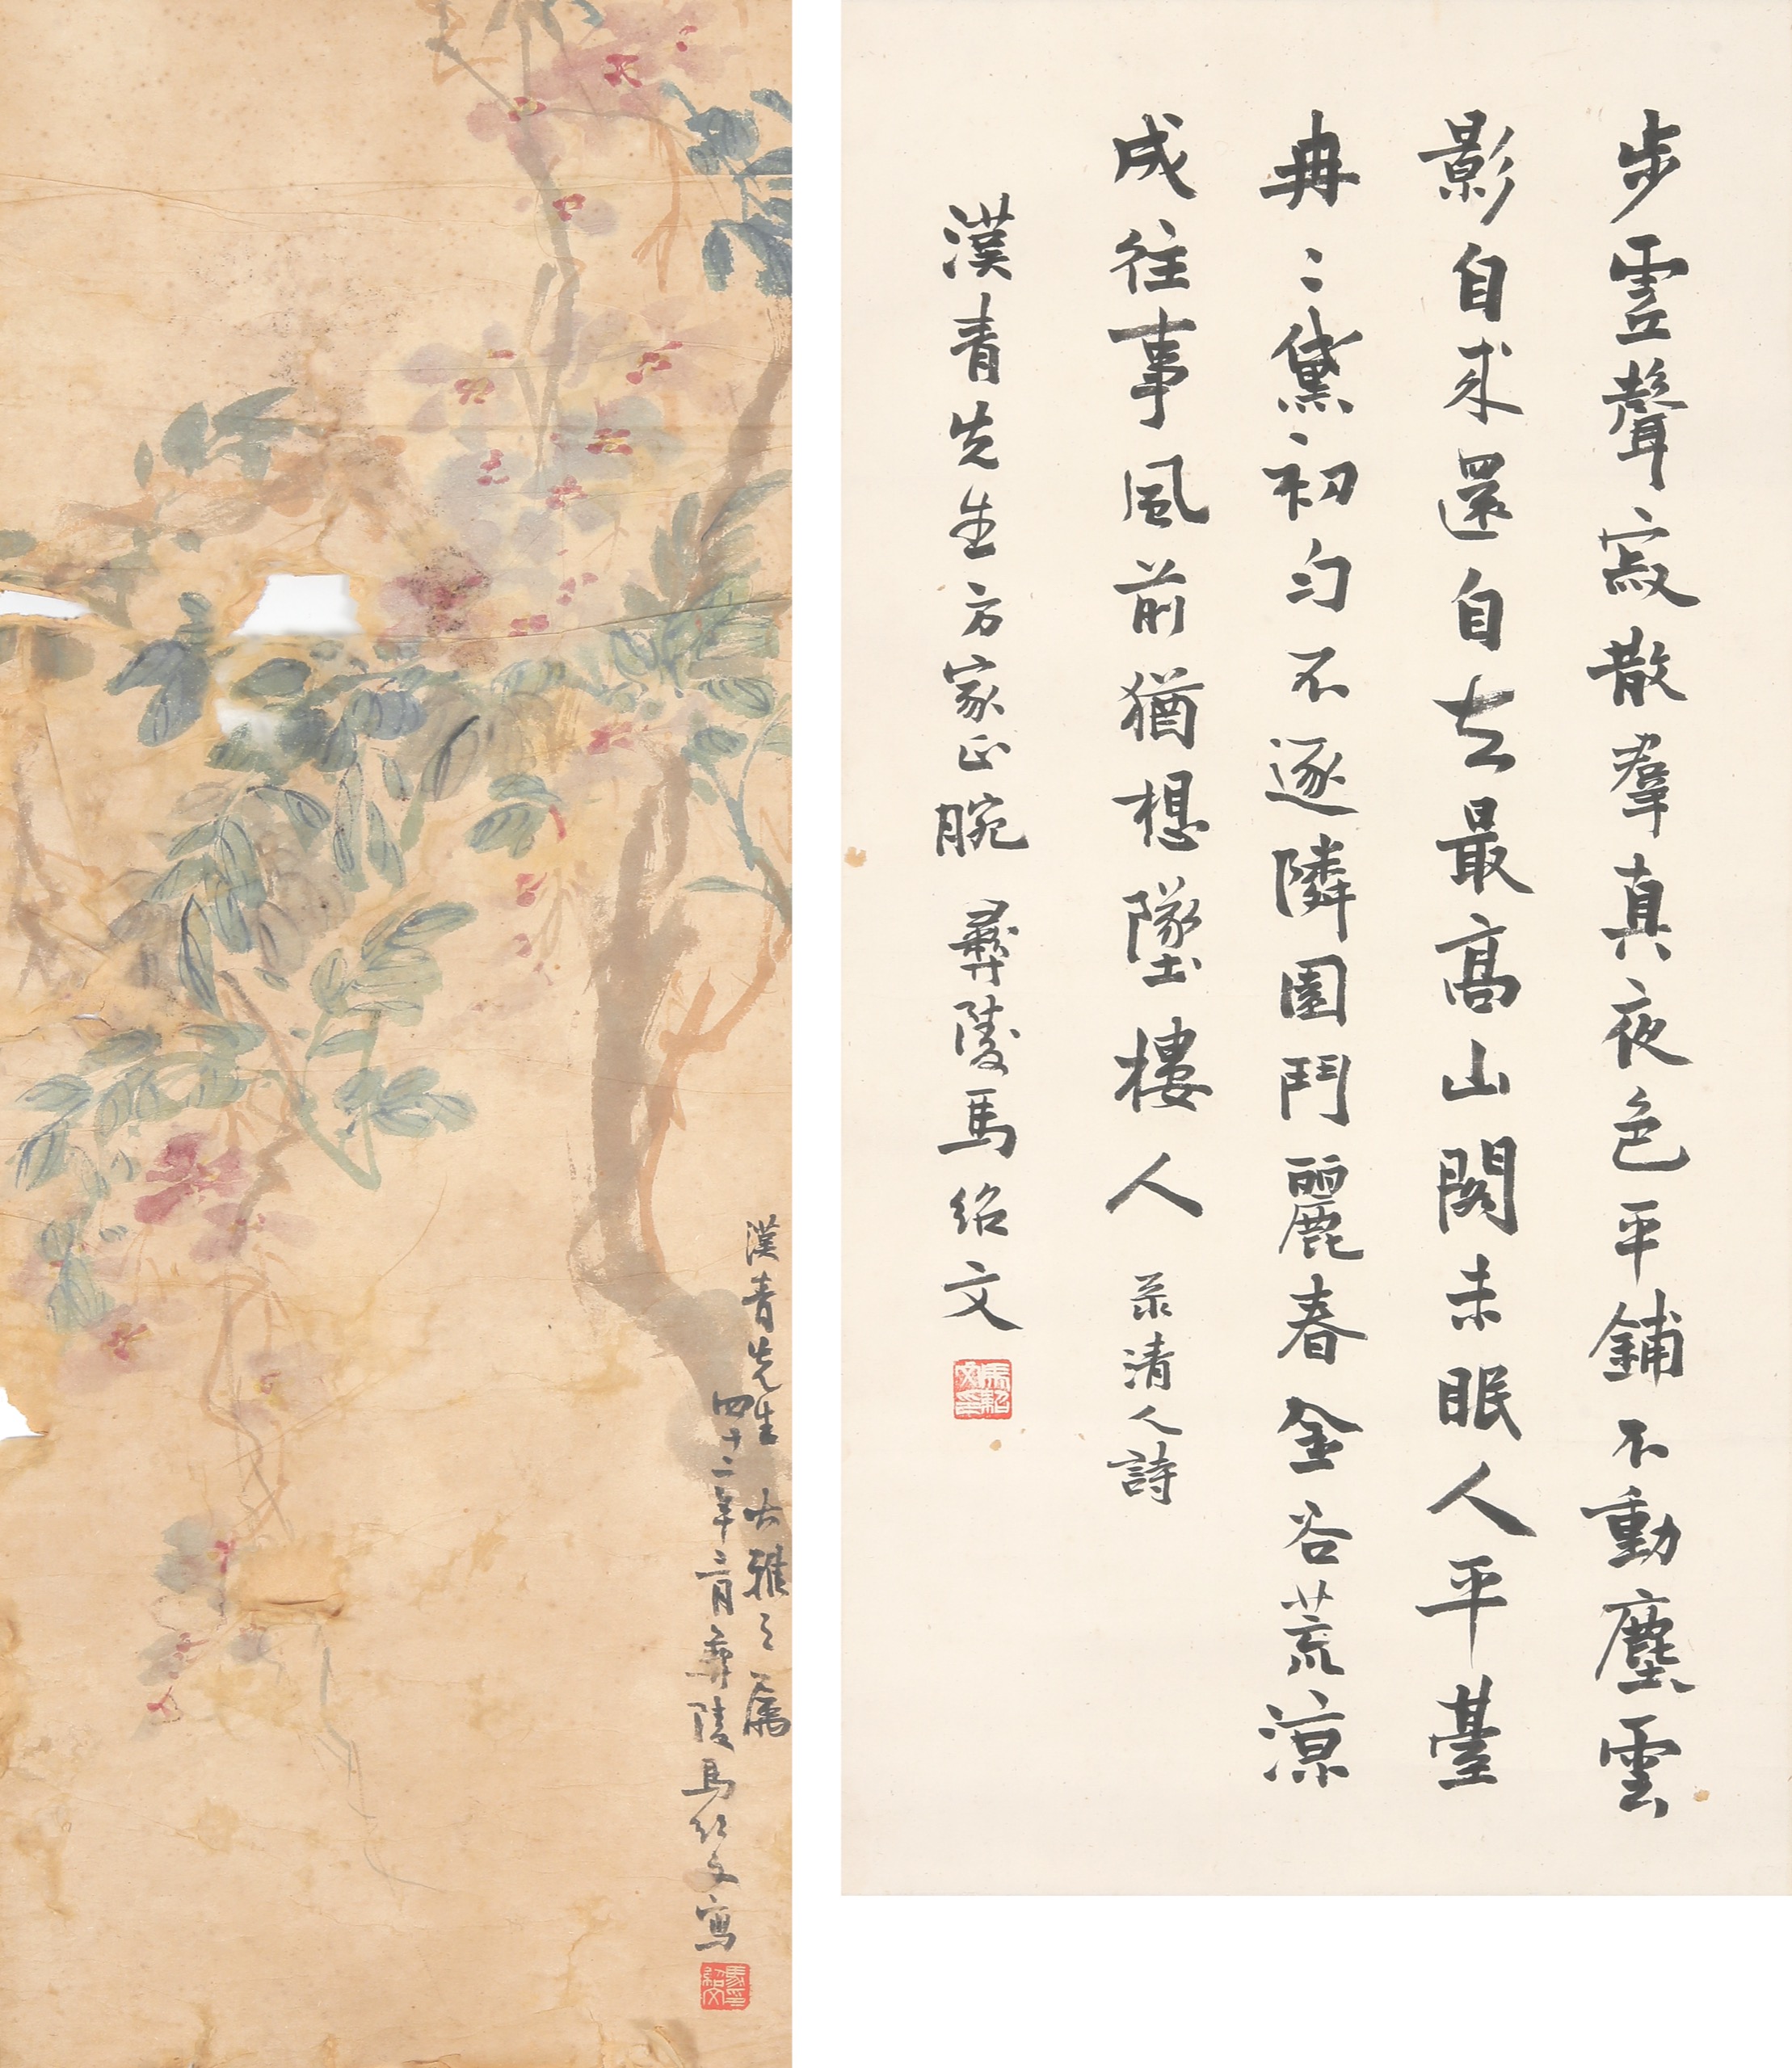 步虛聲寂散羣真夜色平鋪不動塵雲
影自来還自去最高山閣未眠人平臺
冉〻黛初勻不逐隣園鬥麗春金谷荒涼
成往事風前猶想墜樓人 录清人詩
漢青先生方家正腕 彝陵馬绍文
馬紹文印
漢青先生 大雅之属
四十二年三月彝陵馬绍文寫
馬紹文印